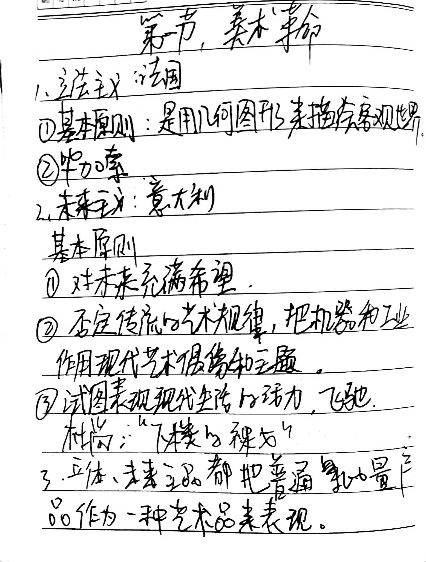 第一节,美术革命
1、立法主义:法国
①基本原则:是用几何图形来描绘客观世界.
②毕加索
2、未来主义:意大利
基本原则
①对未来充满希望.
②否定传流的艺术规律,把机器和工业
作用现代艺术偶像和主题.
③试图表现现代生活的活力,飞驰.
杜尚:"下楼的裸女"
3.立体、未来主义都把普通量产
品作为一种艺术品来表现。